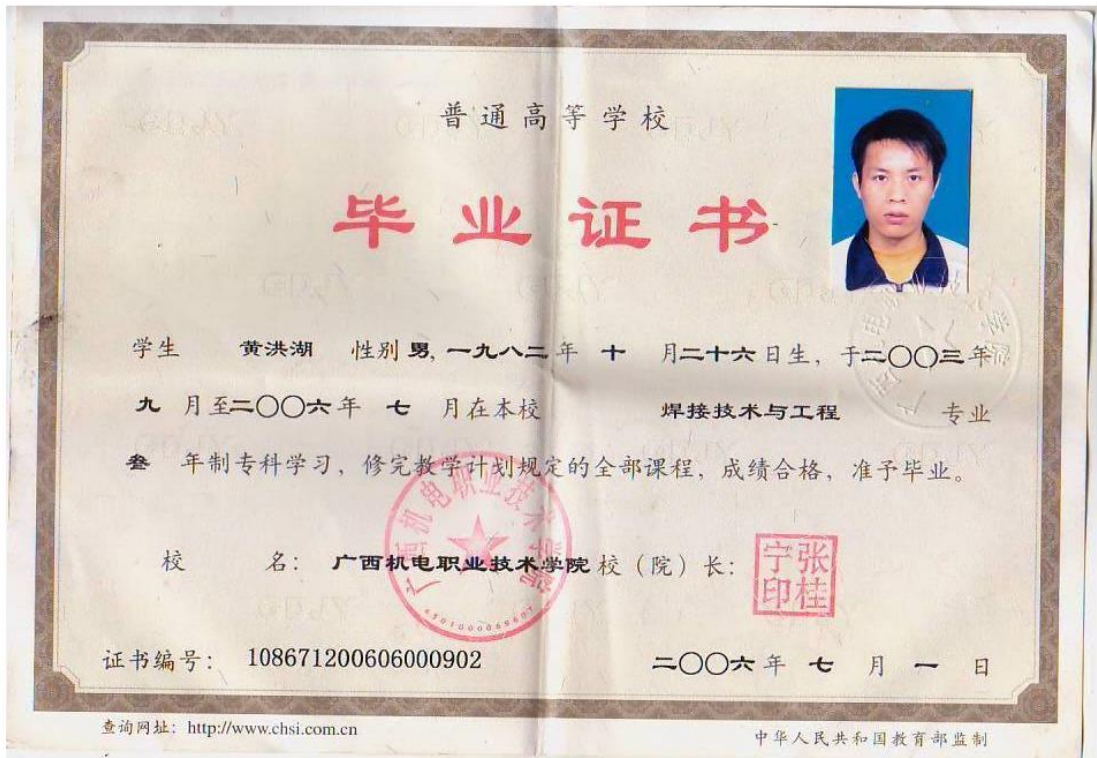 普通高等学校
毕业证书
学生 黄洪湖 性别 男, 一九八二 年 十 月 二十六 日生, 于 二〇〇三 年
九 月至 二〇〇六 年 七 月在本校 焊接技术与工程 专业
叁 年制专科学习, 修完教学计划规定的全部课程, 成绩合格, 准予毕业。
广西机电职业技术学院
校 名: 广西机电职业技术学院 校（院）长: 张桂宁印
证书编号: 108671200606000902 二〇〇六 年 七 月 一 日
查询网址: http://www.chsi.com.cn 中华人民共和国教育部监制